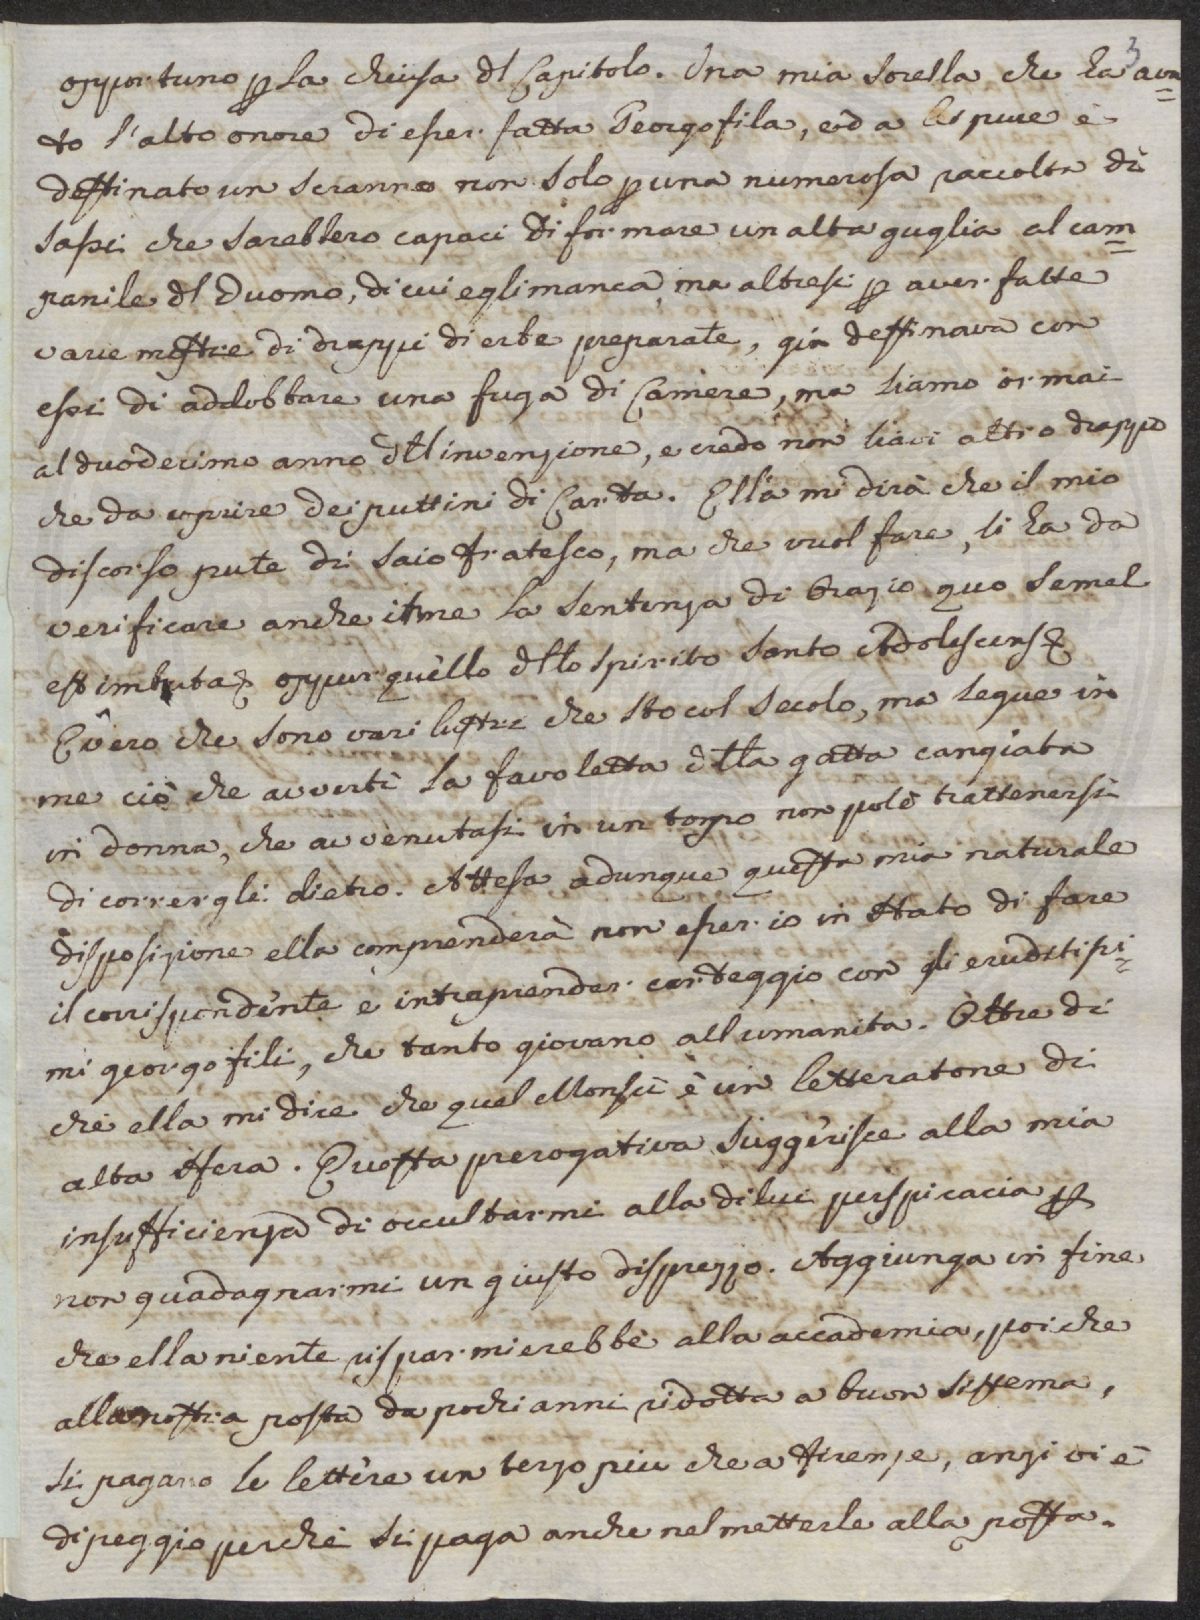 3
opportuno p la chiusa dl Capitolo. Una mia Sorella che ha avu=
to l'alto onore di esser fatta Georgofila, ed a cui pure è
destinato un scranno non solo p una numerosa raccolta di
sassi che sarebbero capaci di formare un alta guglia al cam=
panile dl Duomo, di cui egli manca, ma altresi p aver fatte
varie mostre di drappi di erbe preparate, già destinava con
essi di addobbare una fuga di Camere, ma siamo ormai
al duodecimo anno dll invenzione, e credo non siavi altro drappo
che da coprire dei puttini di Carta. Ella mi dirà che il mio
discorso pute di saio fratesco, ma che vuol fare, si ha da
verificare anche in me la sentenza di Orazio quo semel
est imbuta &c oppur quello dllo spirito santo Adolescens &c
È vero che sono vari lustri che sto col secolo, ma segue in
me ciò che avvertì la favoletta dlla gatta cangiata
in donna, che avvenutasi in un topo non potè trattenersi
di corrergli dietro. Attesa adunque questa mia naturale
disposizione ella comprenderà non esser io in stato di fare
il corrispondente e intraprender carteggio con gli eruditissi=
mi georgofili, che tanto giovano all umanita. Oltre di
che ella mi dice che quel Monsù è un letteratone di
alta sfera. Questa prerogativa suggerisce alla mia
insufficienza di occultarmi alla di lui perspicacia p
non guadagnarmi un giusto disprezzo. Aggiunga in fine
che ella niente risparmierebbe alla accademia, poi che
alla nostra posta da pochi anni ridotta a buon sistema,
si pagano le lettere un terzo più che a Firenze, anzi vi è
di peggio perchè si paga anche nel metterle alla posta.